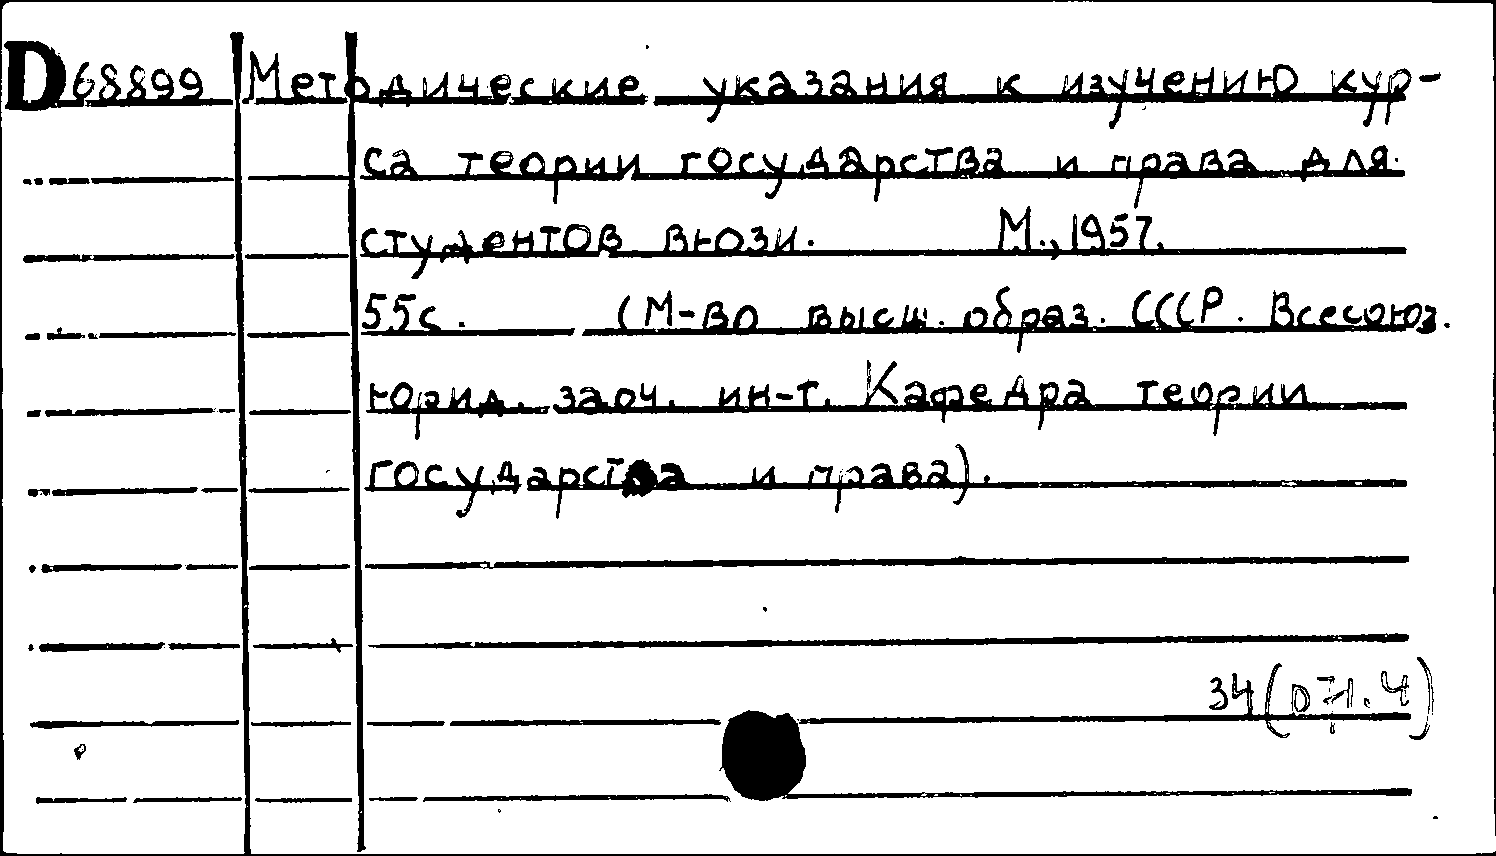 D68899 Методические указания к изучению кур-
са теории государства и права для
студентов ВЮЗИ. М., 1957.
55с. (М-во высш. образ. СССР. Всесоюз.
юрид. заоч. ин-т. Кафедра теории
государства и права).
34(071.4)